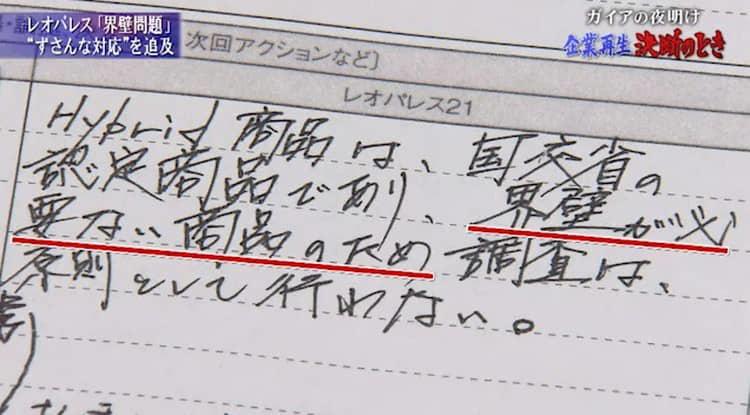 レオパレス「界壁問題」
“ずさんな対応”を追及
ガイアの夜明け
企業再生 決断のとき
次回アクションなど］
レオパレス21
Hybrid 商品は、国交省の
認定商品であり、界壁が必
要ない商品のため調査は、
原則として行わない。